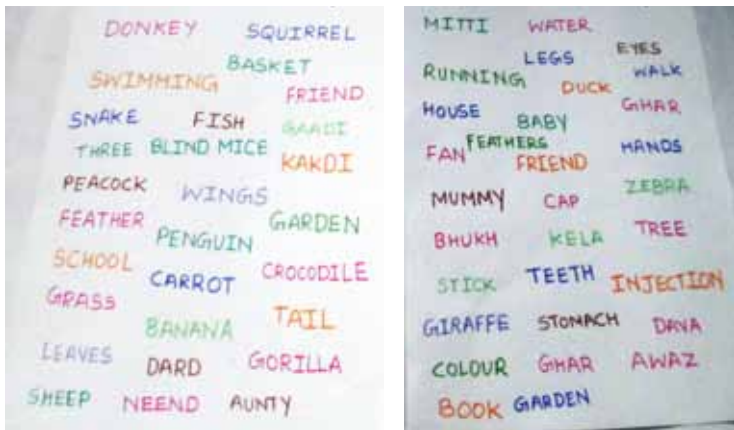 DONKEY SQUIRREL
BASKET
SWIMMING FRIEND
SNAKE FISH GAADI
THREE BLIND MICE KAKDI
PEACOCK WINGS
FEATHER PENGUIN GARDEN
SCHOOL CARROT CROCODILE
GRASS BANANA TAIL
LEAVES DARD GORILLA
SHEEP NEEND AUNTY
MITTI WATER
LEGS EYES
RUNNING DUCK WALK
HOUSE BABY GHAR
FAN FEATHERS FRIEND HANDS
MUMMY CAP ZEBRA
BHUKH KELA TREE
STICK TEETH INJECTION
GIRAFFE STOMACH DAVA
COLOUR GHAR AWAZ
BOOK GARDEN